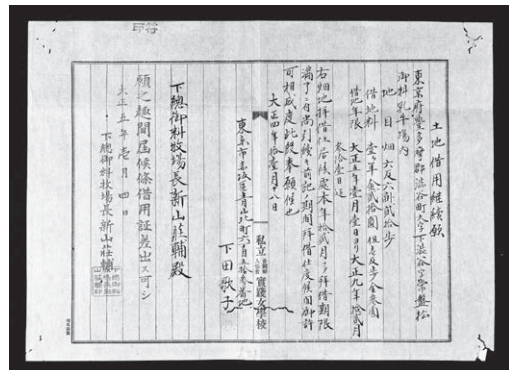 土地借用継続願
東京府豊多摩郡渋谷町大字下渋谷字常盤松
御料乳牛場内
地目 畑六反六割貳拾歩
借地料 壹ヶ年金貳拾圓 但壱反歩金参圓
借地年限 大正五年壹月壹日ヨリ大正九年拾貳月
参拾壹日迄
右畑地拝借仕居候處本年拾貳月ヲ以テ拝借期限
満了ニ付尚引続キ前記ノ期間拝借仕度候間御許
可相成度此段奉願候也
大正四年拾壹月十八日
私立 實踐女學校
東京市赤坂区青山北町六丁目五拾番地
下田歌子
下總御料牧場長新山荘輔殿
願之趣聞届候條借用証差出ス可シ
大正五年壱月四日
下總御料牧場長新山荘輔